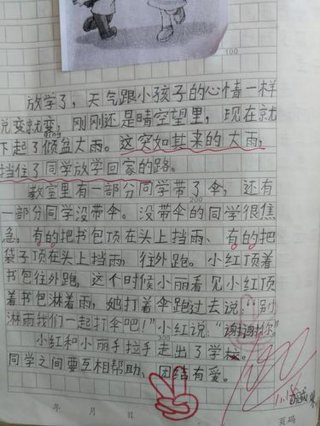 100
放学了，天气跟小孩子的心情一样
说变就变，刚刚还是晴空望里，现在就
下起了倾盆大雨。这突如其来的大雨，
挡住了同学放学回家的路。
教室里有一部分同学带了伞，还有
200
一部分同学没带伞。没带伞的同学很焦
急，有的把书包顶在头上挡雨、有的把
袋子顶在头上挡雨，往外跑。小红顶着
书包往外跑，这个时候小丽看见小红顶
着书包淋着雨，她打着伞跑过去说“别
淋雨我们一起打伞吧！”小红说“谢谢你”
小红和小丽手拉手走出了学校。
同学之间要互相帮助，团结有爱。
年 月 日
页码